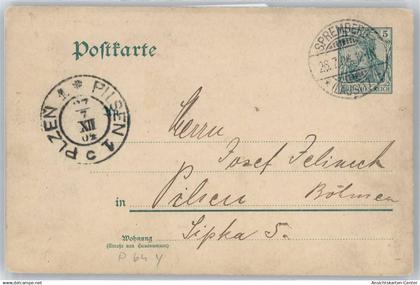 Postkarte
SPREMBERG
5
PLZEN 1 * PILSEN 1
XII
Herrn
Josef Jelineck
in Pilsen Böhmen
Sipka 5.
Wohnung
(Straße und Hausnummer)
P 64 y
www.ansichtskarten-center.de